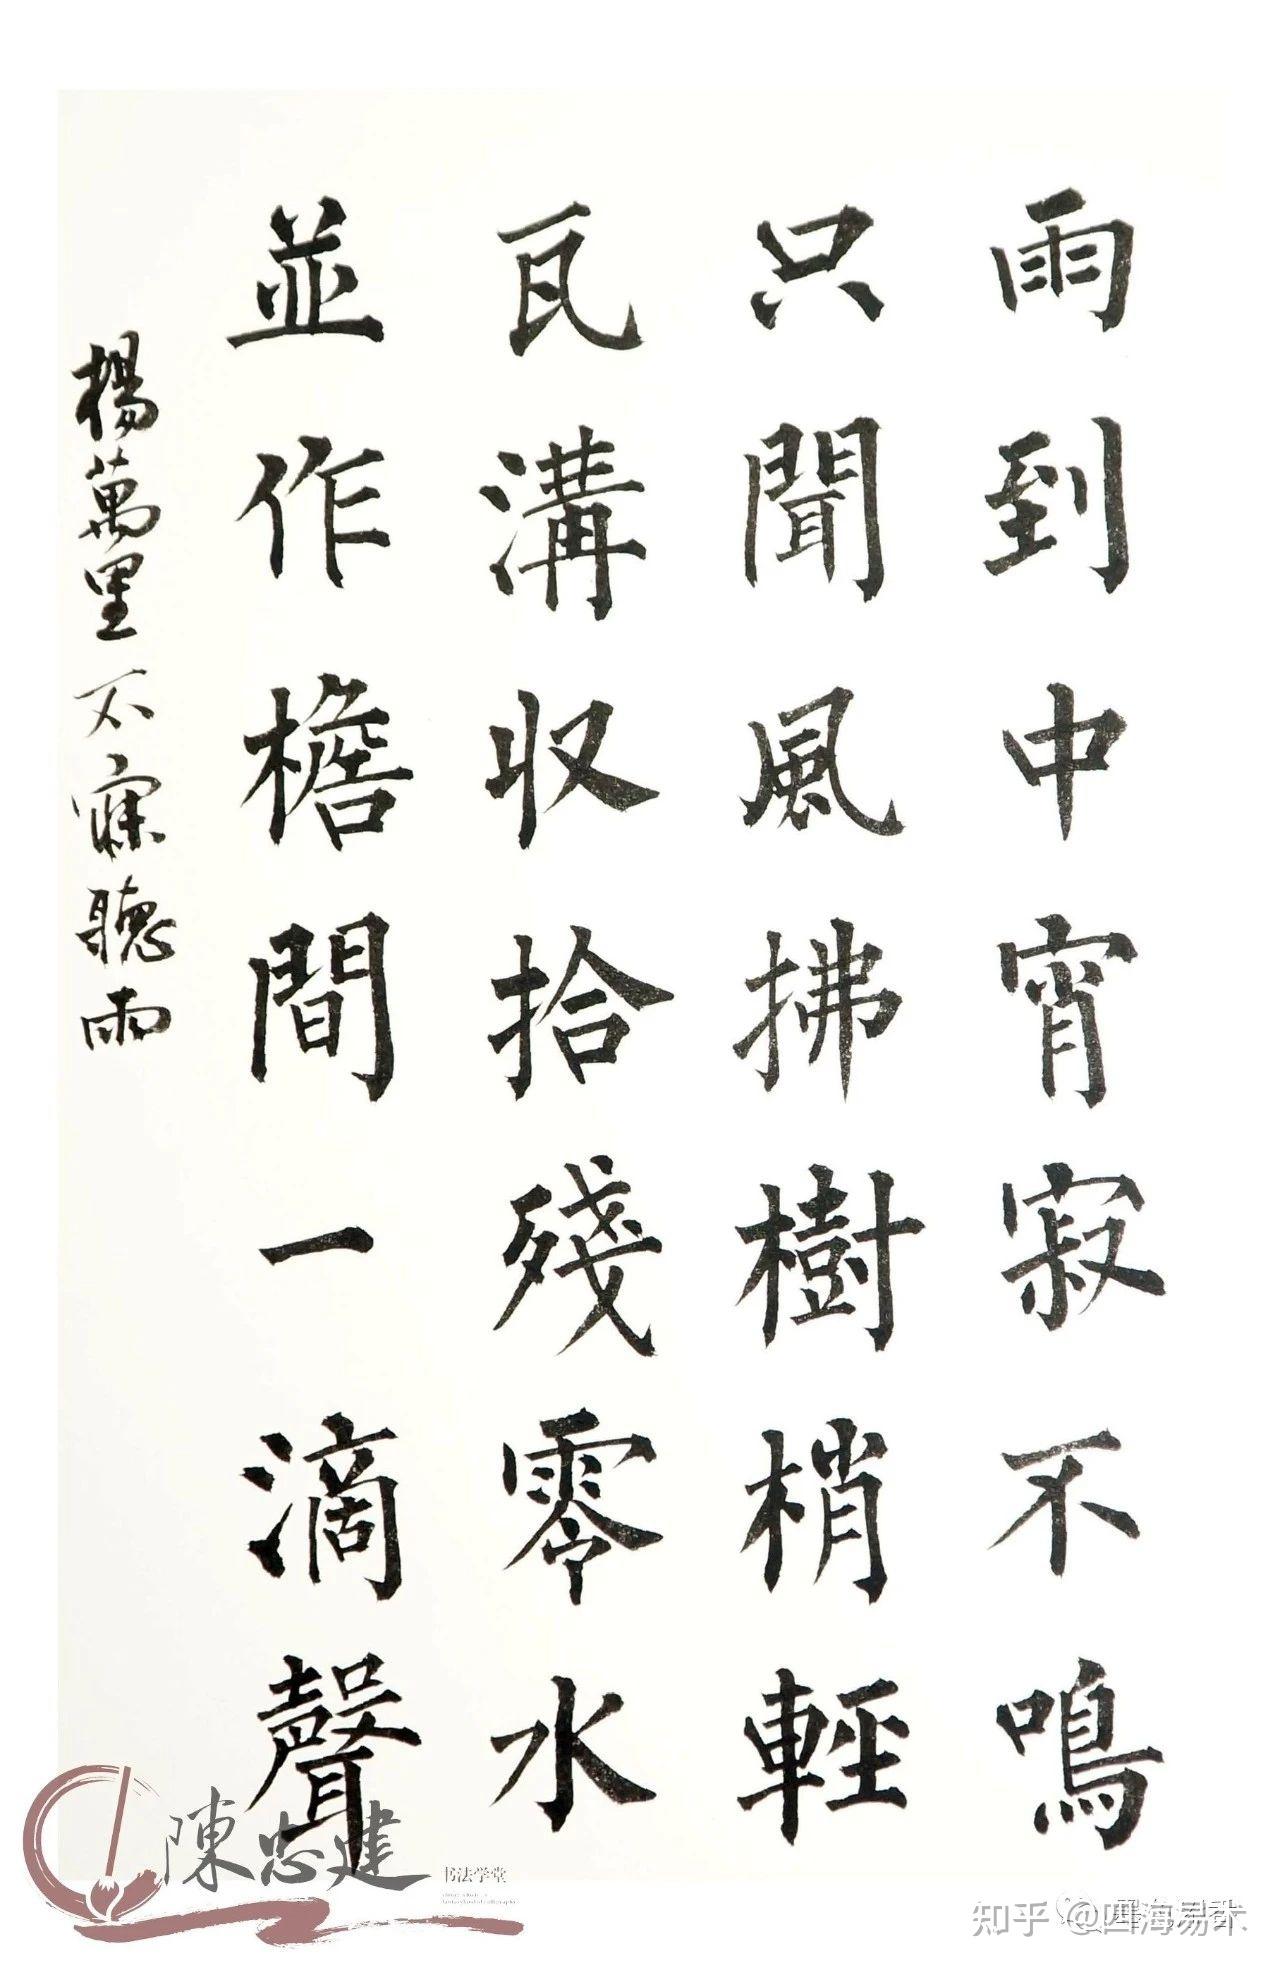 雨到中宵寂不鳴
只聞風拂樹梢輕
瓦溝収拾殘零水
並作檐間一滴聲
楊萬里不寐聽雨
陳忠建
书法学堂
知乎 @四海易木